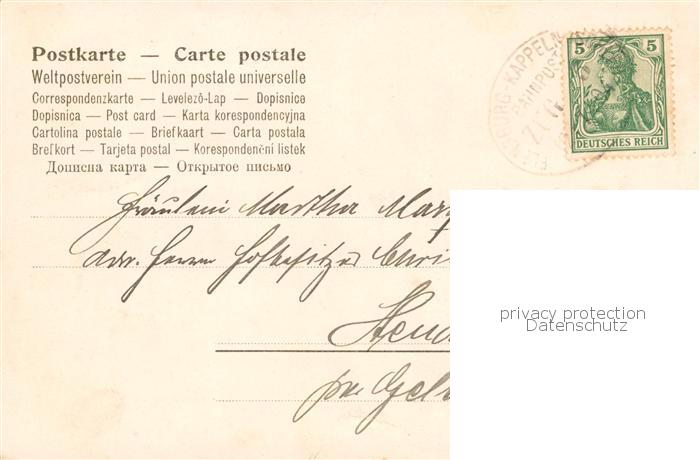 Postkarte — Carte postale
Weltpostverein — Union postale universelle
Correspondenzkarte — Levelezõ-Lap — Dopisnice
Dopisnica — Post card — Karta korespondencyjna
Cartolina postale — Briefkaart — Carta postala
Brefkort — Tarjeta postal — Korespondenční listek
Дописна карта — Открытое письмо
5 5
DEUTSCHES REICH
FLENSBURG-KAPPELN
BAHNPOST
ZUG
Fräulein Martha Mar
Adr. Herrn Hofbesitzer Chri
per Gel
privacy protection
Datenschutz